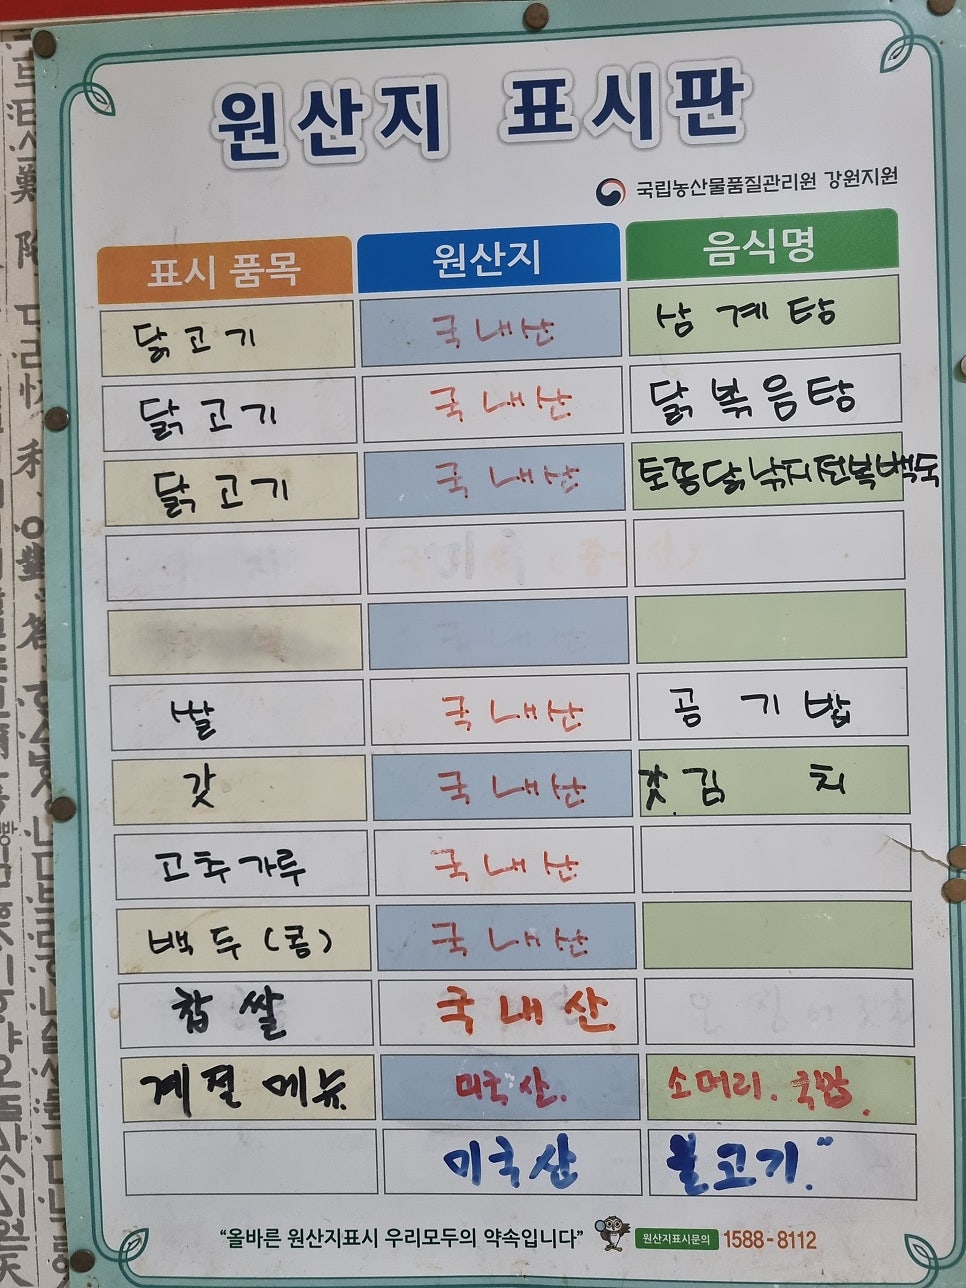 원산지 표시판
국립농산물품질관리원 강원지원
표시 품목 원산지 음식명
닭고기 국내산 삼계탕
닭고기 국내산 닭볶음탕
닭고기 국내산 토종닭낙지전복백숙
쌀 국내산 공기밥
갓 국내산 갓김치
고추가루 국내산
백두(콩) 국내산
찹쌀 국내산
계절 메뉴 미국산. 소머리.국밥.
미국산 불고기.
"올바른 원산지표시 우리모두의 약속입니다" 원산지표시문의 1588-8112